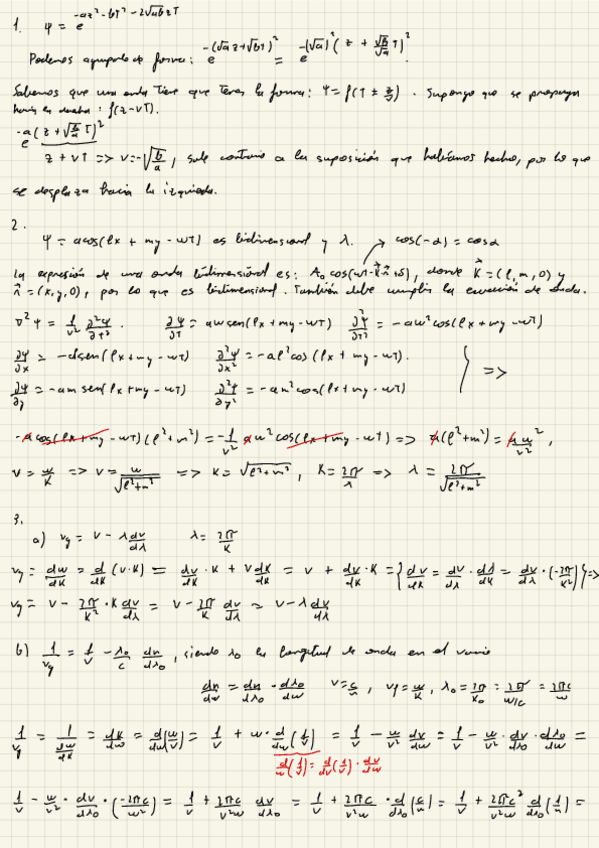 1. ψ = e^{-az²-bt²-2√ab zt}
Podemos agruparlo de forma: e^{-(√a z+√b t)²} = e^{-(√a)²(z + √b/√a t)²}.
Sabemos que una onda tiene que tener la forma: ψ = f(t ± z/v). Supongo que se propaga
hacia la derecha: f(z-vt).
e^{-a(z+√(b/a) t)²}
z + vt => v=-√(b/a), sale contrario a la suposición que habíamos hecho, por lo que
se desplaza hacia la izquierda.
2.
ψ = a cos(lx + my - wt) es bidimensional y λ. cos(-α) = cosα
La expresión de una onda bidimensional es: A₀ cos(wt-k⃗·r⃗+δ), donde k⃗ = (l, m, 0) y
r⃗ = (x, y, 0), por lo que es bidimensional. También debe cumplir la ecuación de onda.
∇²ψ = 1/v² ∂²ψ/∂t². ∂ψ/∂t = aw sen(lx + my - wt) ∂²ψ/∂t² = -aw² cos(lx + my - wt)
∂ψ/∂x = -al sen(lx + my - wt) ∂²ψ/∂x² = -al² cos(lx + my - wt). } =>
∂ψ/∂y = -am sen(lx + my - wt) ∂²ψ/∂y² = -am² cos(lx + my - wt)
-a cos(lx + my - wt)(l²+m²) = -1/v² a w² cos(lx + my - wt) => a(l²+m²) = a w²/v²,
v = w/k => v = w/√(l²+m²) => k = √(l²+m²), k = 2π/λ => λ = 2π/√(l²+m²)
3.
a) vg = v - λ dv/dλ λ = 2π/k
vg = dw/dk = d/dk (v·k) = dv/dk · k + v dk/dk = v + dv/dk · k = { dv/dk = dv/dλ · dλ/dk = dv/dλ · (-2π/k²) } =>
vg = v - 2π/k² · k dv/dλ = v - 2π/k dv/dλ = v - λ dv/dλ
b) 1/vg = 1/v - λ₀/c dn/dλ₀, siendo λ₀ la longitud de onda en el vacío
dn/dw = dn/dλ₀ · dλ₀/dw v = c/n, vf = w/k, λ₀ = 2π/k₀ = 2π/(w/c) = 2πc/w
1/vg = 1/(dw/dk) = dk/dw = d/dw (w/v) = 1/v + w · d/dw (1/v) = 1/v - w/v² dv/dw = 1/v - w/v² · dv/dλ₀ · dλ₀/dw =
d/dw (1/v) = d/dv (1/v) · dv/dw
1/v - w/v² · dv/dλ₀ · (-2πc/w²) = 1/v + 2πc/v²w dv/dλ₀ = 1/v + 2πc/v²w · d/dλ₀ (c/n) = 1/v + 2πc²/v²w d/dλ₀ (1/n) =